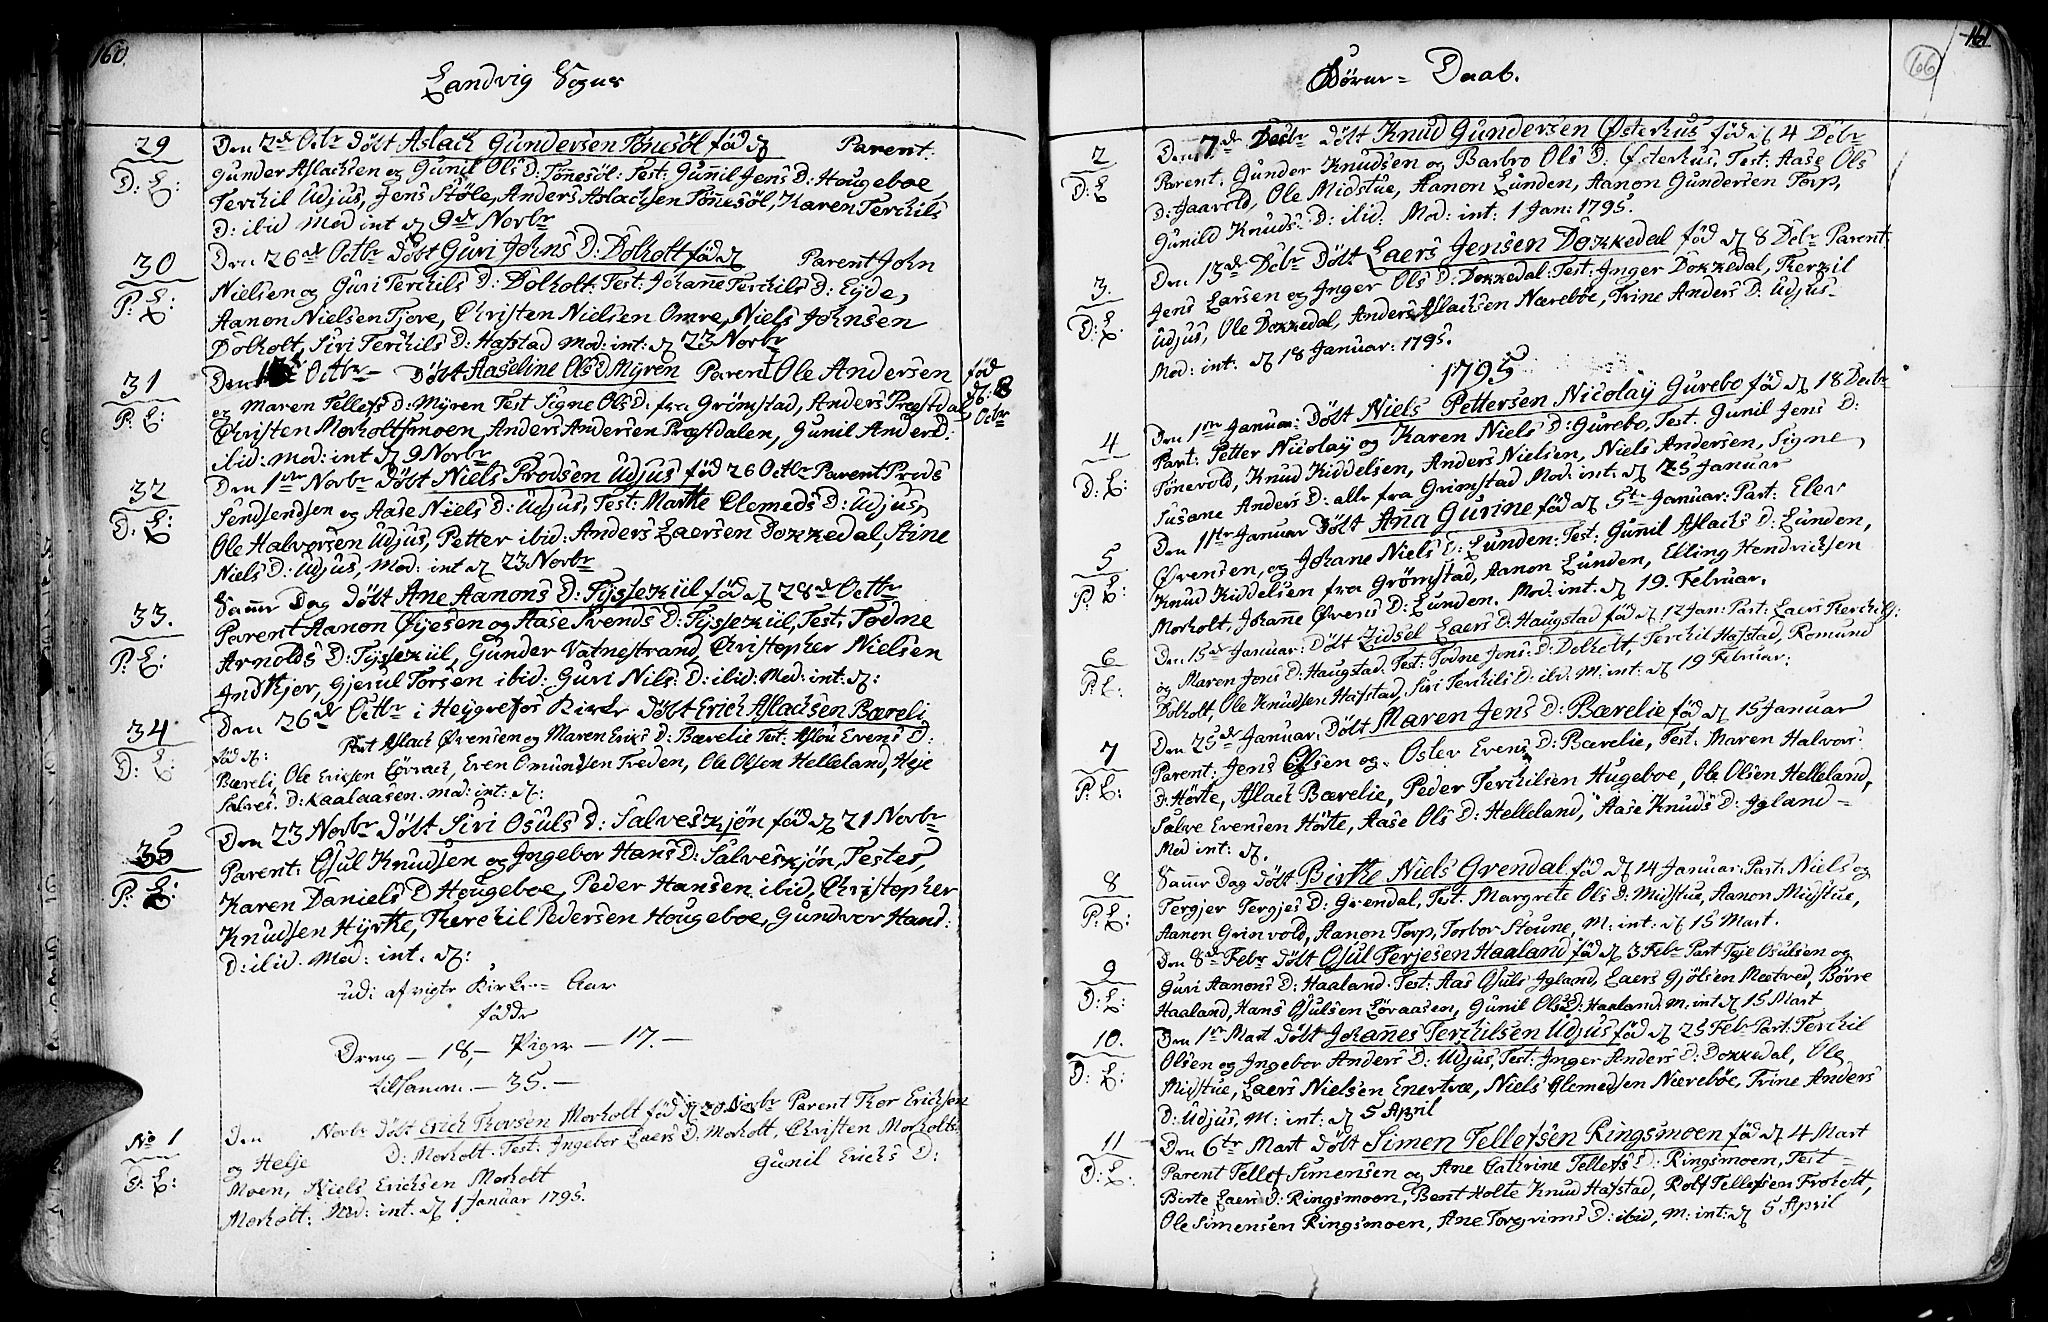 160.
Landvig Sogns
29
D: E:
Den 2de Octbr döbt Aslach Gundersen Tönesöl föd d Parent:
Gunder Aslachsen og Gunil Ols D: Tönesöl: Test: Gunil Jens D: Hougeboe
Terchil Udjus, Jens Støle, Anders Aslachsen Tönnesöl, Karen Terchils
D: ibid Mod int d 9de Novbr
30
P. E:
Den 26de Octbr döbt Guri Johns D: Dolholt föd d Parent John
Nielsen og Guri Terchils D: Dolholt: Test: Johanne Terchils D: Eyde,
Aanon Nielsen Tjore, Christen Nielsen Omre, Niels Johnsen
Dolholt, Siri Terchils D: Hafstad Mod: int: d 23 Novbr
31
P. E:
Den Octbr - Döbt Aaseline Ols D Myren Parent Ole Andersen föd
og Maren Tellefs D: Myren Test Signe Ols D: fra Grömstad, Anders Præstdal d: 8
Christen Morholtsmoen, Anders Andersen Præstdalen, Gunil Anders D: Octbr
ibid: Mod: int d 9 Novbr
32
D: E:
Den 1ste Novbr döbt Niels Prodsen Udjus föd 26 Octbr Parent Prods
Sendsendsen og Aase Niels D: Udjus, Test: Marthe Clemeds D: Udjus,
Ole Halvorsen Udjus, Petter ibid: Anders Laersen Dokkedal, Stine
Niels D: Udjus, Mod: int d 23 Novbr
33.
P. E:
Samme Dag döbt Ane Aanons D: Tysse Kiil föd d 28de Octbr
Parent Aanon Øyesen og Aase Svends D: Tyssekiil, Test: Todne
Arnolds D: Tyssekiil, Gunder Vatnestrand, Christopher Nielsen
Indkjer, Gjerul Torsen ibid: Guri Nils: D: ibid: Mod: int: d:
34
D: E:
Den 26de Octbr i Heygrefos Kirke döbt Erich Aslachsen Bæreli
föd d: Part Aslach Øvensen og Maren Erics D: Bærelie Test: Aslou Evens D:
Bæreli, Ole Ericsen Lörrach, Even Omundsen Treden, Ole Olsen Helleland, Heje
Salves: D: Kaalaasen. Mod: int: d:
35
P: E:
Den 23 Novbr döbt Siri Osuls D: Salveskjön föd d 21 Novbr
Parent: Osul Knudsen og Ingebor Hans D: Salveskjön, Testes,
Karen Daniels D Hougeboe, Peder Hansen ibid, Christopher
Knudsen Hyrtte, Therchil Pedersen Hougeboe, Gundvor Hans:
D: ibid. Mod: int. d:
udi afvigte Kirke= Aar
fødde
Dreng — 18, — Piger — 17. —
tilsamen — 35. —
No 1
D: E:
Den Novbr döbt Erich Thorsen Morholt föd d 20 Novbr Parent Thor Erichsen
og Helje D: Morholt. Test: Ingebor Laers D: Morholt, Christen Morholts-
Moen, Niels Ericsen Morholt Gunil Erichs D:
Morholt: Mod: int. d 1 Januar 1795.
161
66
Börne= Daab.
2
D: E
Den 7de Decbr döbt Knud Gundersen Østerhus föd d 4 Debr
Parent: Gunder Knudsen og Barbro Ols D: Østerhus, Test: Aase Ols
D: Jaavold, Ole Midstue, Aanon Lunden, Aanon Gundersen Torp,
Gunild Knuds: D: ibid: Mod: int: 1 Jan: 1795.
3.
D: E.
Den 13de Debr Döbt Laers Jensen Dokkedal föd d 8 Debr Parent:
Jens Larsen og Inger Ols D: Dokkedal: Test: Inger Dokkedal, Therkil
Udjus, Ole Dokkedal, Anders Aslachsen Nærebøe, Trine Anders D: Udjus-
Mod: int. d 18 Januar: 1795.
1795
4
D: E:
Den 1ste Januar: Döbt Niels Pettersen Nicolay Gurebo föd d 18 Decbr
Part: Petter Nicolay og Karen Niels D: Gurebo, Test: Gunil Jens D:
Tönevold, Knud Kiddelsen, Anders Nielsen, Niels Andersen, Signe
Susane Anders D: alle fra Grimstad Mod: int: d 25 Januar
5
P: E:
Den 11ste Januar Döbt Ana Gurine föd d 5te Januar: Part: Elev
Øvensen, og Johane Niels D: Lunden: Test: Gunil Aslachs D: Lunden,
Knud Kiddelsen fra Grömstad, Aanon Lunden, Elling Hendrichsen
Morholt, Johanne Øvens D: Lunden. Mod: int: d 19. Februar.
6
P. E:
Den 15de Januar: Döbt Zidsel Laers D: Haugstad föd d 12 Jan: Part: Laers Therchils:
og Maren Jens D: Haugstad. Test: Todne Jens: D: Dolholt, Terchil Hafstad, Romund
Dolholt, Ole Knudsen Hafstad, Siri Terchils D: ibid. M: int: d 19 Februar:
7
P: E:
Den 25de Januar: Döbt Maren Jens D: Bærelie föd d 15 Januar
Parent: Jens Olsen og Oslev Evens D: Bærelie, Test: Maren Halvors:
D: Hörte, Aslach Bærelie, Peder Terchilsen Hugeboe, Ole Olsen Helleland,
Salve Evensen Hörte, Aase Ols D: Helleland, Aase Knuds D: Igland=
Mod int: d.
8
P: E:
Samme Dag döbt Birthe Niels Grendal föd d 14 Januar: Part: Niels og
Tergjer Tergjes D: Grendal, Test. Margrete Ols D: Midstue, Aanon Midstue,
Aanon Grinvold, Aanon Torp, Torbor Stoune, M: int: d 15 Mart.
9
D: E:
Den 8de Febr döbt Osul Terjesen Haaland föd d 3 Febr Part Teje Osulsen og
Guri Aanons D: Haaland. Test: Aas Osuls Igland, Laers Gjölsen Mætved, Börre
Haaland, Hans Osulsen Lövaasen, Gunil Ols D: Haaland: M. int d 15 Mart
10.
D: E:
Den 1ste Mart döbt Johannes Terchilsen Udjus föd d 25 Febr Part: Terchil
Olsen og Ingebor Anders D: Udjus, Test: Inger Anders D: Dokkedal, Ole
Midstue, Laers Nielsen Enertræ, Niels Clemedsen Nærebøe, Trine Anders
D: Udjus, M: int: d 5 April
11
D: E:
Den 6te Mart döbt Simen Tellefsen Ringsmoen föd d 4 Mart
Parent Tellef Simensen og Ane Cathrine Tellefs D: Ringsmoen, Test=
Birte Laers D: Ringsmoen, Bent Holte Knud Hafstad, Rolf Tellefsen Froholt,
Ole Simensen Ringsmoen, Ane Torgrims D: ibid, M: int: d 5 April